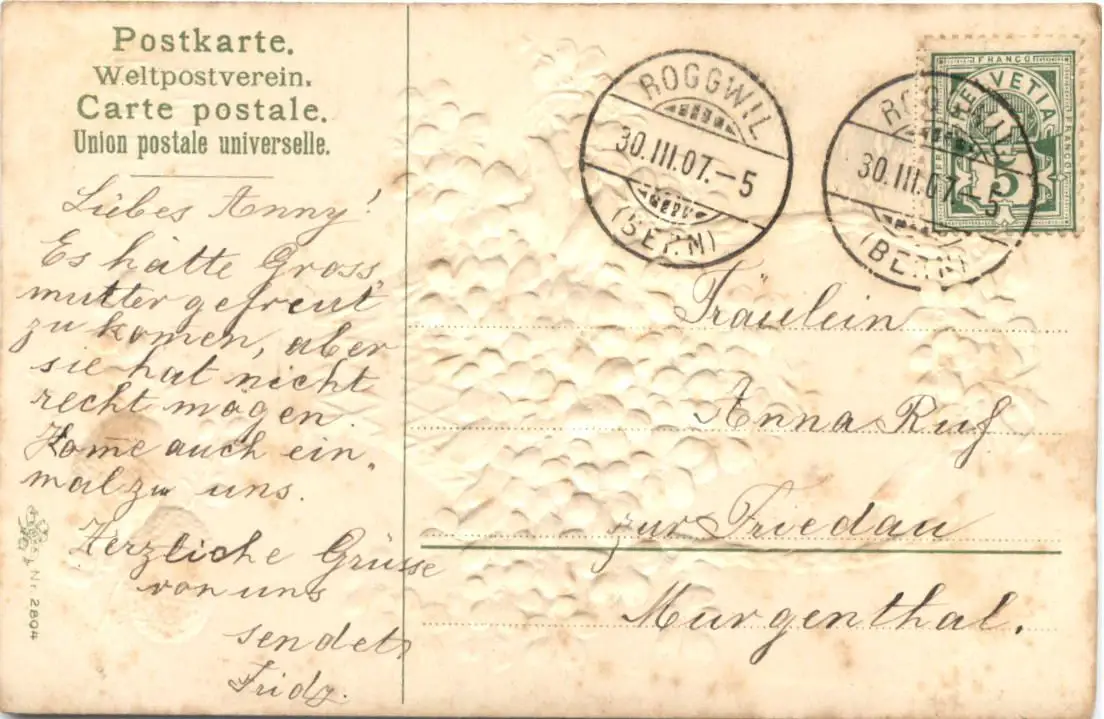 Postkarte.
Weltpostverein.
Carte postale.
Union postale universelle.
Liebes Anny!
Es hätte Gross„
mutter gefreut
zu komen, aber
sie hat nicht
recht mögen.
Kom̅e auch ein„
mal zu uns.
Herzliche Grüsse
von uns
sendet,
Fridz.
Nr. 2804
ROGGWIL
30.III.07.–5
(BERN)
ROGGWIL
30.III.07.–5
(BERN)
FRANCO
HELVETIA
FRANCO
5
Fräulein
Anna Ruf
zur Friedau
Murgenthal.